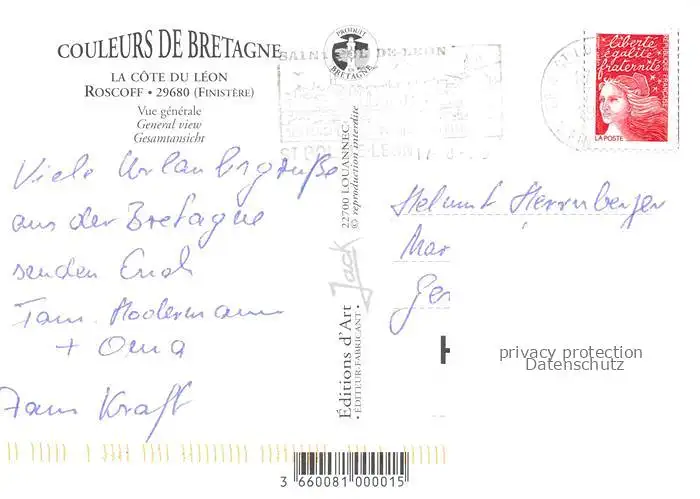 COULEURS DE BRETAGNE
LA CÔTE DU LÉON
ROSCOFF • 29680 (FINISTÈRE)
Vue générale
General view
Gesamtansicht
PRODUIT EN BRETAGNE
SAINT POL-DE-LEON
ST POL-DE-LEON 17-8-
liberté
égalité
fraternité
RÉPUBLIQUE FRANÇAISE
LA POSTE
Viele Urlaubsgrüße
aus der Bretagne
senden Euch
Fam. Modermann
+ Oma
Fam Kraft
Editions d'Art Jack 22700 LOUANNEC
• ÉDITEUR-FABRICANT • © reproduction interdite
Helmut Herrnberger
Mar
Ger
privacy protection
Datenschutz
3 660081 000015